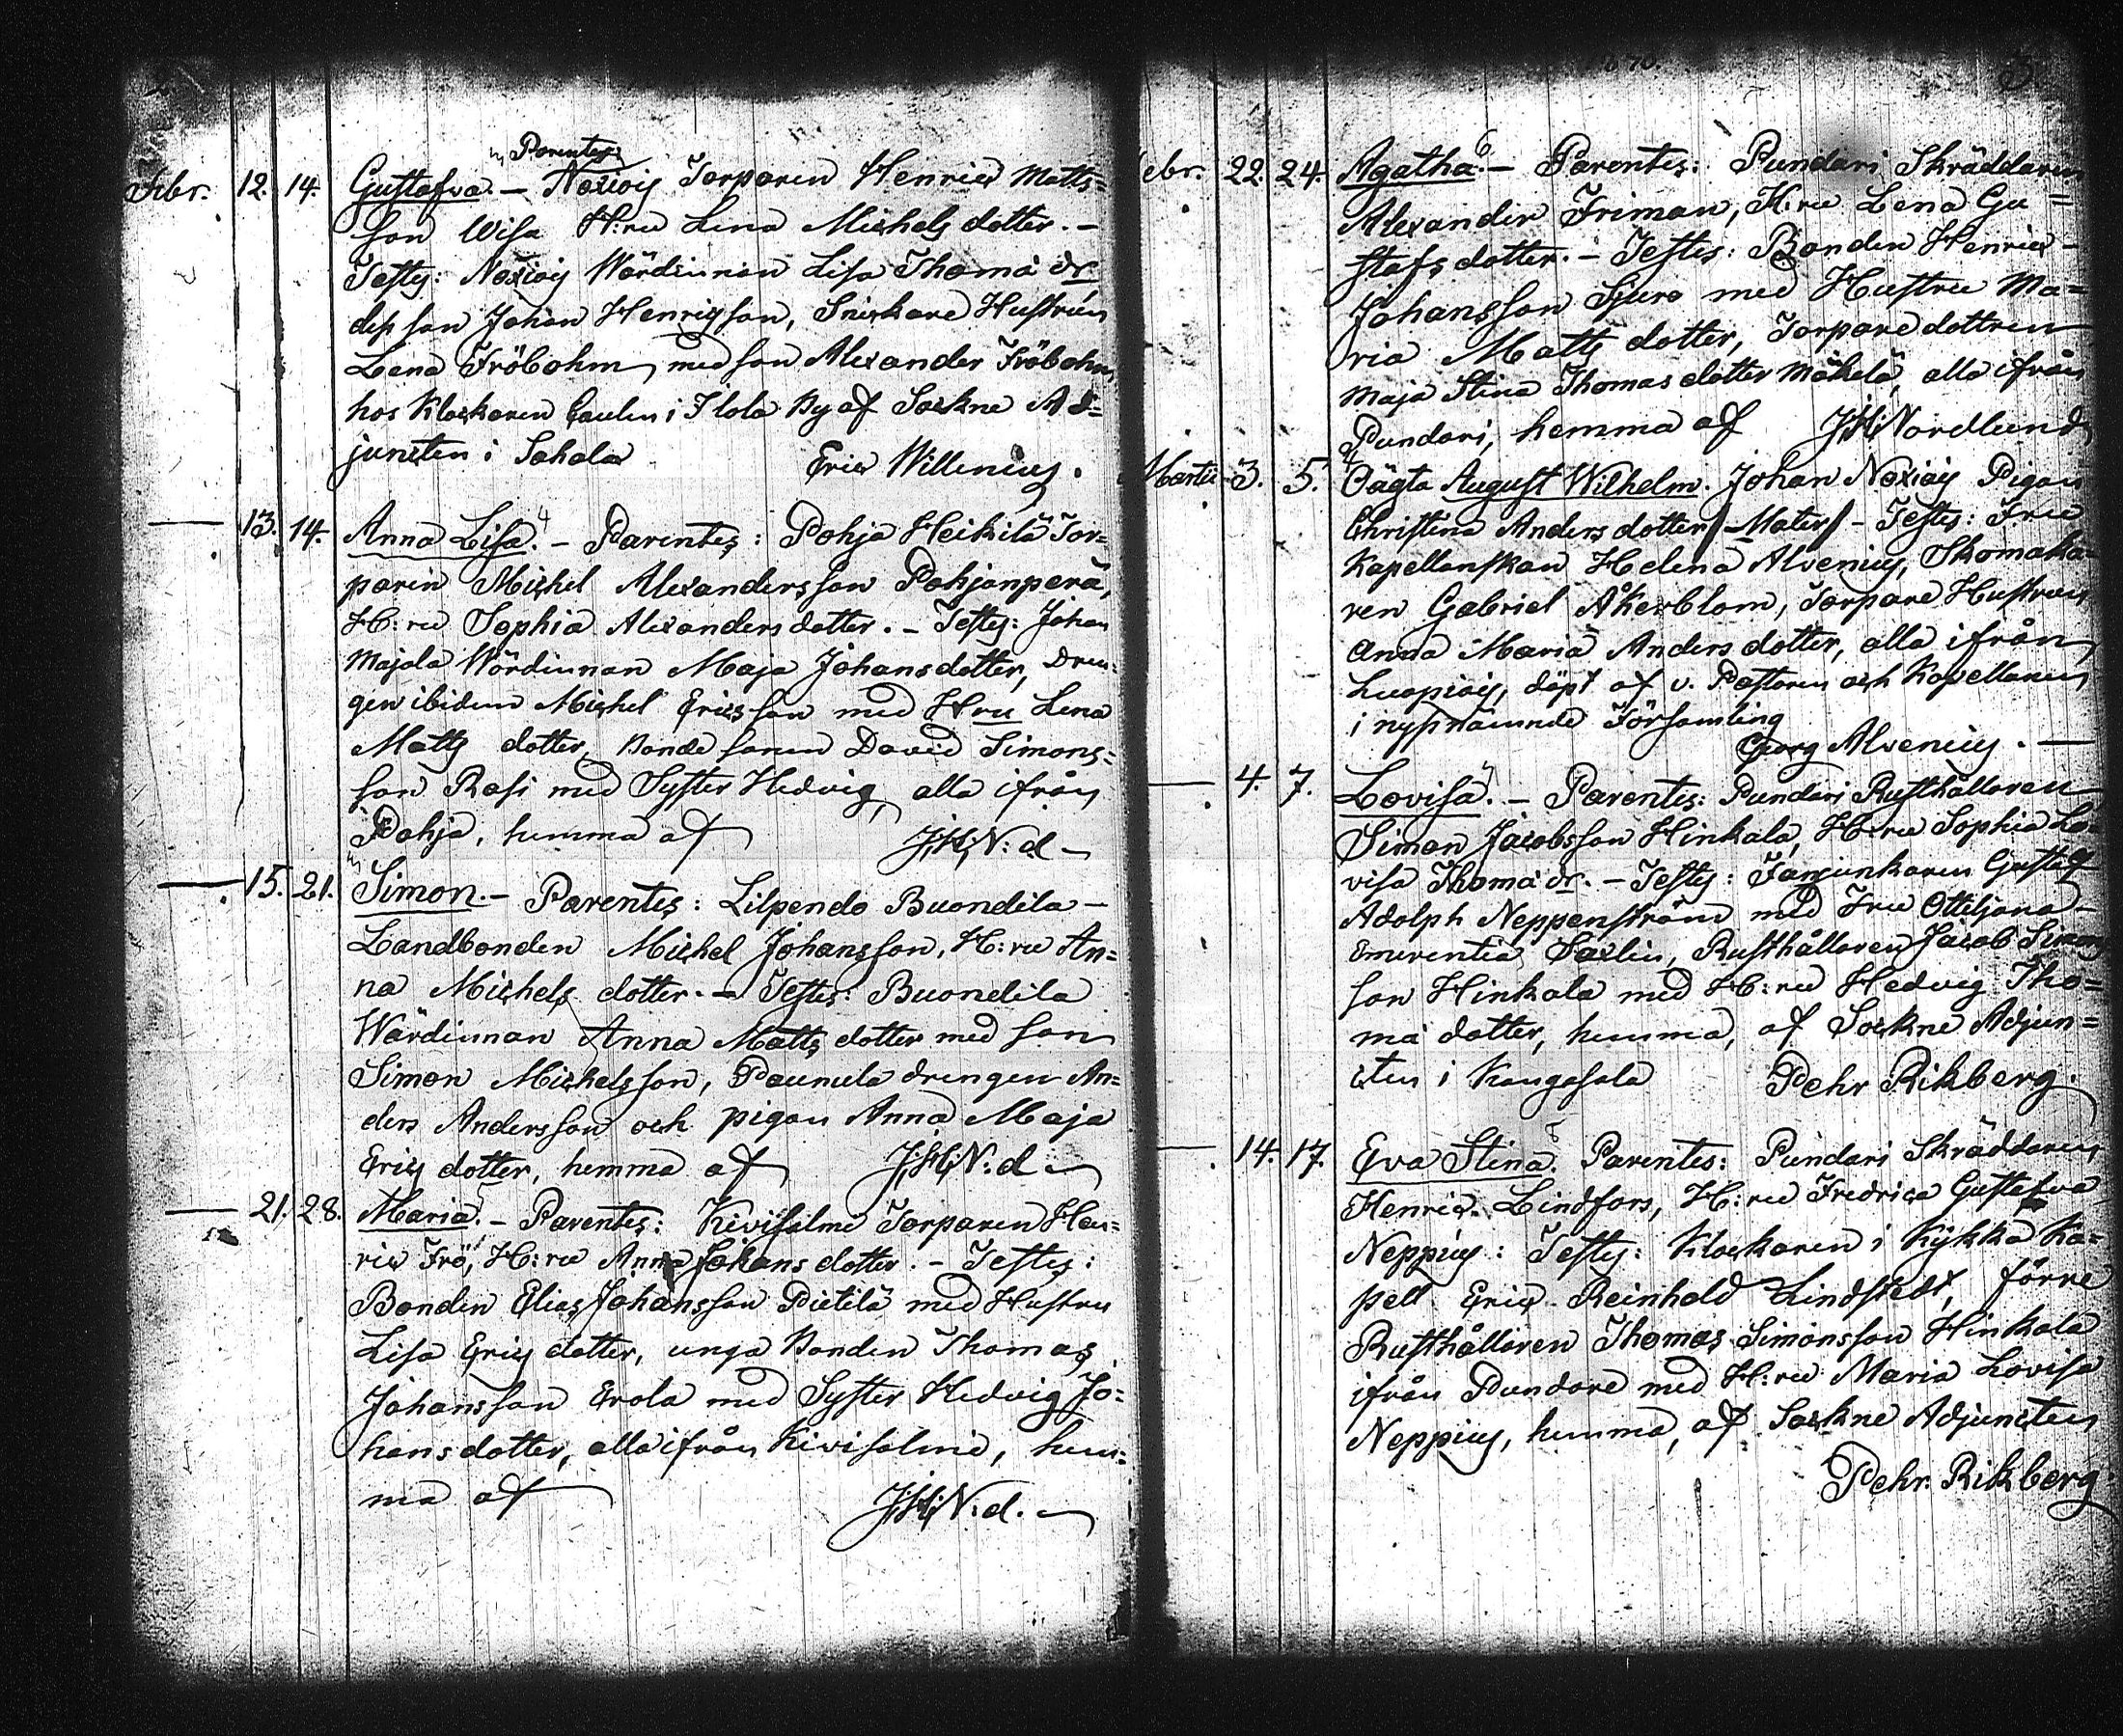 Parentes
Febr. 12. 14. Gustafva. – Noxiois Torparen Henric Matts=
son Wisa H:ru Lena Michels dotter. –
Testes: Noxiois Wärdinnan Lisa Thomæ dr
dess son Johan Henricsson, Snickare Hustrun
Lena Fröbohm med son Alexander Fröbohm
hos Klockaren Caulen i Ilola By af Sockne Ad=
juncten i Sahala Eric Willenius.
— 13. 14. Anna Lisa. 4 – Parentes: Pohja Heikilä Tor=
paren Michel Alexandersson Pohjanperä,
H:ru Sophia Alexanders dotter. – Testes: Johan
Majala Wärdinnan Maja Johansdotter, Dren=
gen ibidem Michel Ericsson med Hru Lena
Matts dotter, Bonde sonen David Simons=
son Rasi med Syster Hedvig, alla ifrån
Pohja, hemma af J.H.N:d –
— 15. 21. Simon. – Parentes: Lilpendo Buondila –
Landbonden Michel Johansson, H:ru An=
na Michels dotter. – Testes: Buondila
Wärdinnan Anna Matts dotter med son
Simon Michelsson, Paunula drengen An=
ders Andersson och pigan Anna Maja
Erics dotter, hemma af J.H.N:d –
— 21. 28. Maria. 5 – Parentes: Kivisalmi Torparen Hen=
ric Frö, H:ru Anna Johans dotter. – Testes:
Bonden Elias Johansson Pietilä med Hustru
Lisa Erics dotter, unga Bonden Thomas
Johansson Erola med Syster Hedvig Jo=
hans dotter, alla ifrån Kivisalmi, hem=
ma af J.H.N.d. –
3.
ebr. 22. 24. Agatha. 6 – Parentes: Pundari Skräddaren
Alexander Friman, H:ru Lena Gu=
stafs dotter. – Testes: Bonden Henric –
Johansson Sjuro med Hustru Ma=
ria Matts dotter, Torpare dottren
Maja Stina Thomas dotter Mäkelä, alla ifrån
Pundari, hemma af J.H.Nordlund
Martii 3. 5. Oägta August Wilhelm. Johan Noxiois Pigan
Christina Anders dotter /Mater/ – Testes: Fru
Kapellanskan Helena Alvenius, Skomaka=
ren Gabriel Åkerblom, Torpare Hustrun
Anna Maria Anders dotter, alla ifrån
Luopiois, döpt af v. Pastoren och Kapellanen
i nyssnämnde Församling
Georg Alvenius. —
— 4. 7. Lovisa. – Parentes: Pundari Rusthållaren
Simon Jacobsson Hinkala, H:ru Sophia Lo=
visa Thomæ dr. – Testes: Fanjunkaren Gustaf
Adolph Neppenström med Fru Ottiljana –
Emerentia Saxlin, Rusthållaren Jacob Simons
son Hinkala med H:ru Hedvig Tho=
mæ dotter, hemma, af Sockne Adjun=
cten i Kangasala Pehr Rikberg.
— 14. 17. Eva Stina. Parentes: Pundari Skräddaren
Henric Lindfors, H:ru Fredrica Gustafva
Neppius: Testes: Klockaren i Kykkä Ka=
pell Eric Reinhold Lindstedt, förre
Rusthållaren Thomas Simonsson Hinkala
ifrån Pundare med H:ru Maria Lovisa
Neppius, hemma, af Sockne Adjuncten
Pehr Rikberg